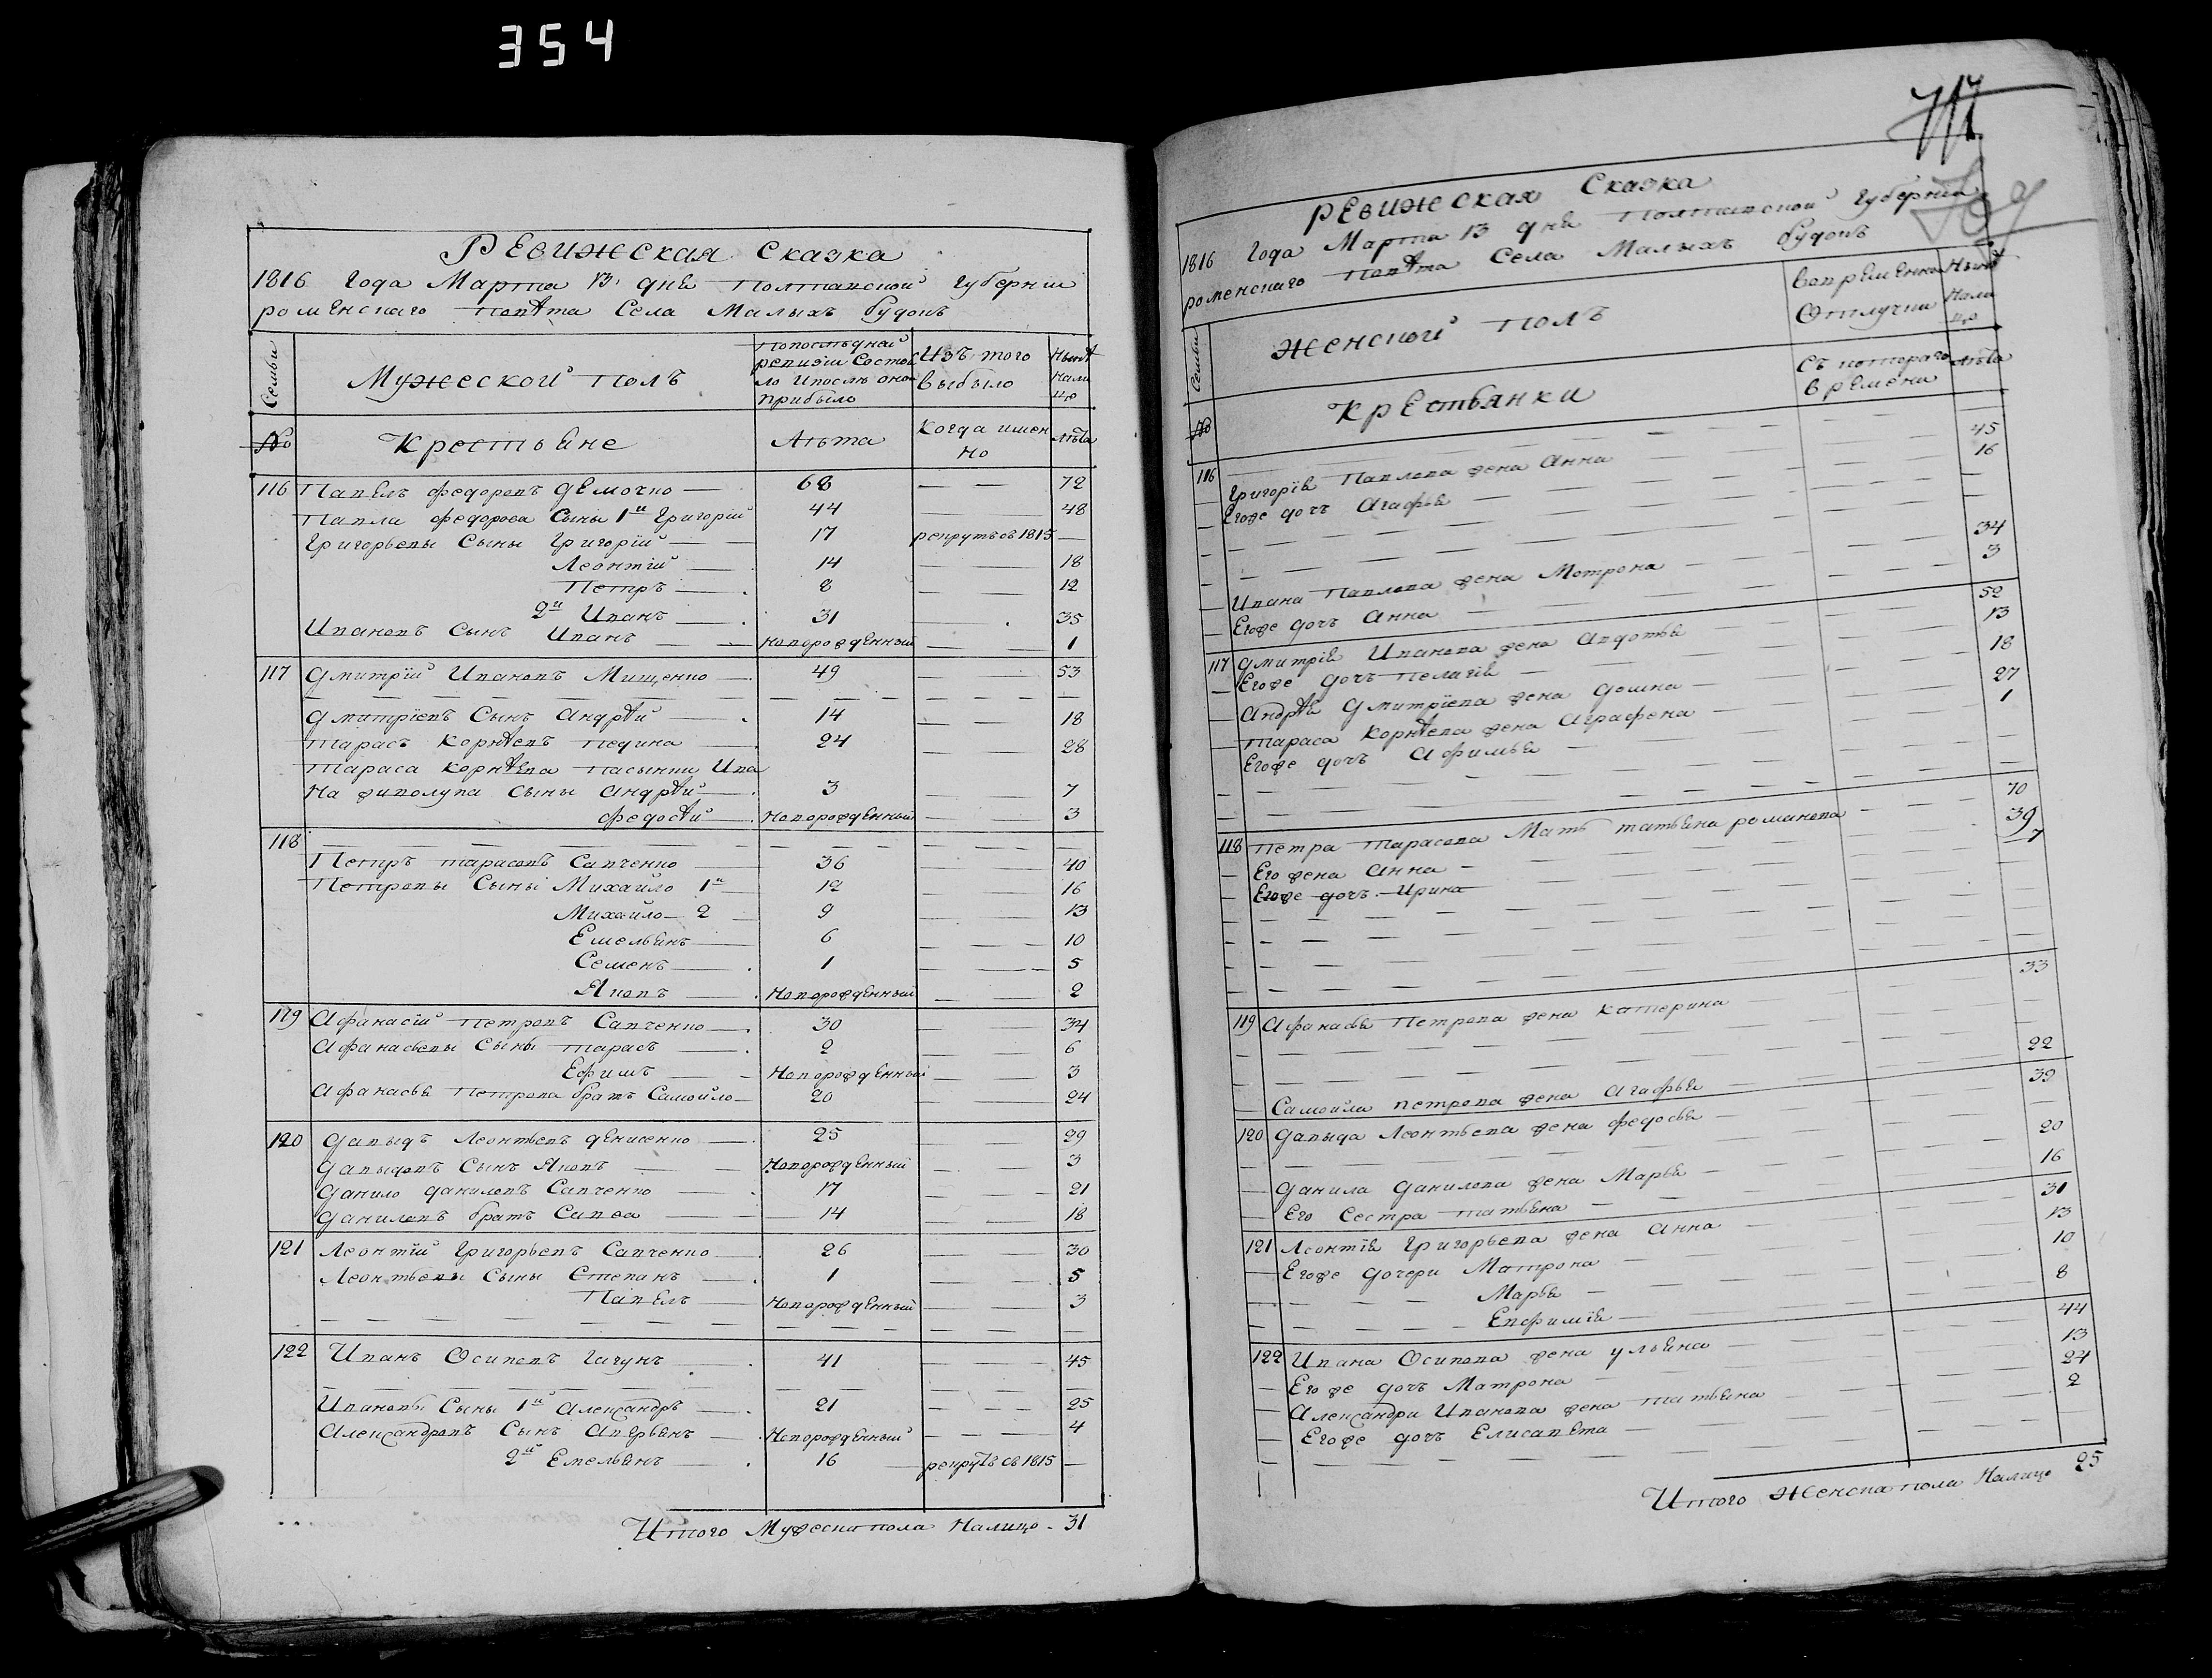 354
Ревижская Сказка
1816 Года Марта 13 дня Полтавской Губернїи
роменскаго повѣта Села Малыхъ будовъ
Семьи
Мужеской полъ
Попослѣдней ревизїи Состояло ипослѣ оной прибыло
Изъ того выбыло
Нынѣ налицо
№ Крестьяне Лѣта Когда имен но лѣта
116 Павелъ федоровъ Демочко — 68 — — 72
Павла федорова Сыны 1й Григорїй 44 — 48
Григорьевы Сыны Григорїй — — 17 рекрутъ въ 1815 —
Леонтїй — 14 — — 18
Петръ — 8 — — 12
2й Иванъ — 31 — 35
Ивановъ Сынъ Иванъ — — Новорожденный — — 1
117 Дмитрїй Ивановъ Мищенко — 49 — 53
— — — — — — — — — — —
Дмитрїевъ Сынъ Андрѣй — 14 — — 18
Тарасъ Корнѣевъ Педина — 24 — — 28
Тараса Корнѣева пасынки Ива
на живолупа Сыны Андрѣй — 3 — 7
федосѣй — Новорожденный — — 3
118 — — — — — — — — — —
Петръ Тарасовъ Савченко — 36 — 40
Петровы Сыны Михайло 1й 12 — 16
Михайло 2 — 9 — 13
Емельянъ — 6 — — 10
Семенъ — 1 — — 5
Яковъ — Новорожденный — — 2
119 Афанасїй Петровъ Савченко — 30 — 34
Афанасьевы Сыны Тарасъ — 2 — 6
Ефимъ — Новорожденный — 3
Афанасья Петрова братъ Самойло — 20 — 24
120 Давыдъ Леонтьевъ Денисенко — 25 — 29
Давыдовъ Сынъ Яковъ — — Новорожденный — 3
Данило Даниловъ Савченко — 17 — — 21
Даниловъ братъ Савва — — 14 — — 18
121 Леонтїй Григорьевъ Савченко — 26 — 30
Леонтьевы Сыны Степанъ — 1 — 5
Павелъ — Новорожденный — — 3
— — — — — — — — — — —
122 Иванъ Осиповъ Гагунъ — 41 — — 45
— — — — — — — — — —
Ивановы Сыны 1й Александръ — 21 — — 25
Александровъ Сынъ Аверьянъ — Новорожденный — — 4
2й Емельянъ — 16 — рекрутъ въ 1815 —
Итого Мужеска пола Налицо - 31
717
Ревижская Сказка
1816 Года Марта 13 дня Полтавской Губернїи
роменскаго Повѣта Села Малыхъ будовъ
Семьи
Женской полъ
вовременной Отлучки
Нынѣ налицо
№ Крестьянки Съ котораго времени лѣта
— — — — — —
116 Григорїя Павлова жена Анна — 45
— Егоже дочь Агафья — 16
— — — — — —
— — — — — —
— Ивана Павлова жена Мотрона — 34
— Егоже дочь Анна — 3
117 Дмитрїя Иванова жена Авдотья 52
— Егоже дочь Пелагїя — 13
— Андрѣя Дмитрїева жена Домна — 18
— Тараса Корнѣева жена Аграфена — 27
Егоже дочь Афимья — 1
— — — — — —
— — — — — —
118 Петра Тарасова Мать татьяна романова 70
— Его жена Анна — 39
— Егоже дочь Ирина 7
— — — — — —
— — — — — —
— — — — — —
— — — — — —
119 Афанасья Петрова жена Катерина 33
— — — — — —
— — — — — —
— Самойла петрова жена Агафья 22
120 Давыда Леонтьева жена федосья 39
— — — — — —
— Данила Данилова жена Марья — 20
— Его Сестра Татьяна — 16
121 Леонтїя Григорьева жена Анна — 31
— Егоже дочери Матрона — 13
— — — Марья — 10
— — — Евфимїя — 8
122 Ивана Осипова жена ульяна — 44
— Егоже дочь Матрона — 13
— Александра Иванова жена Татьяна 24
— Егоже дочь Елисавета — 2
— — — — — —
Итого Женска пола Налицо 25